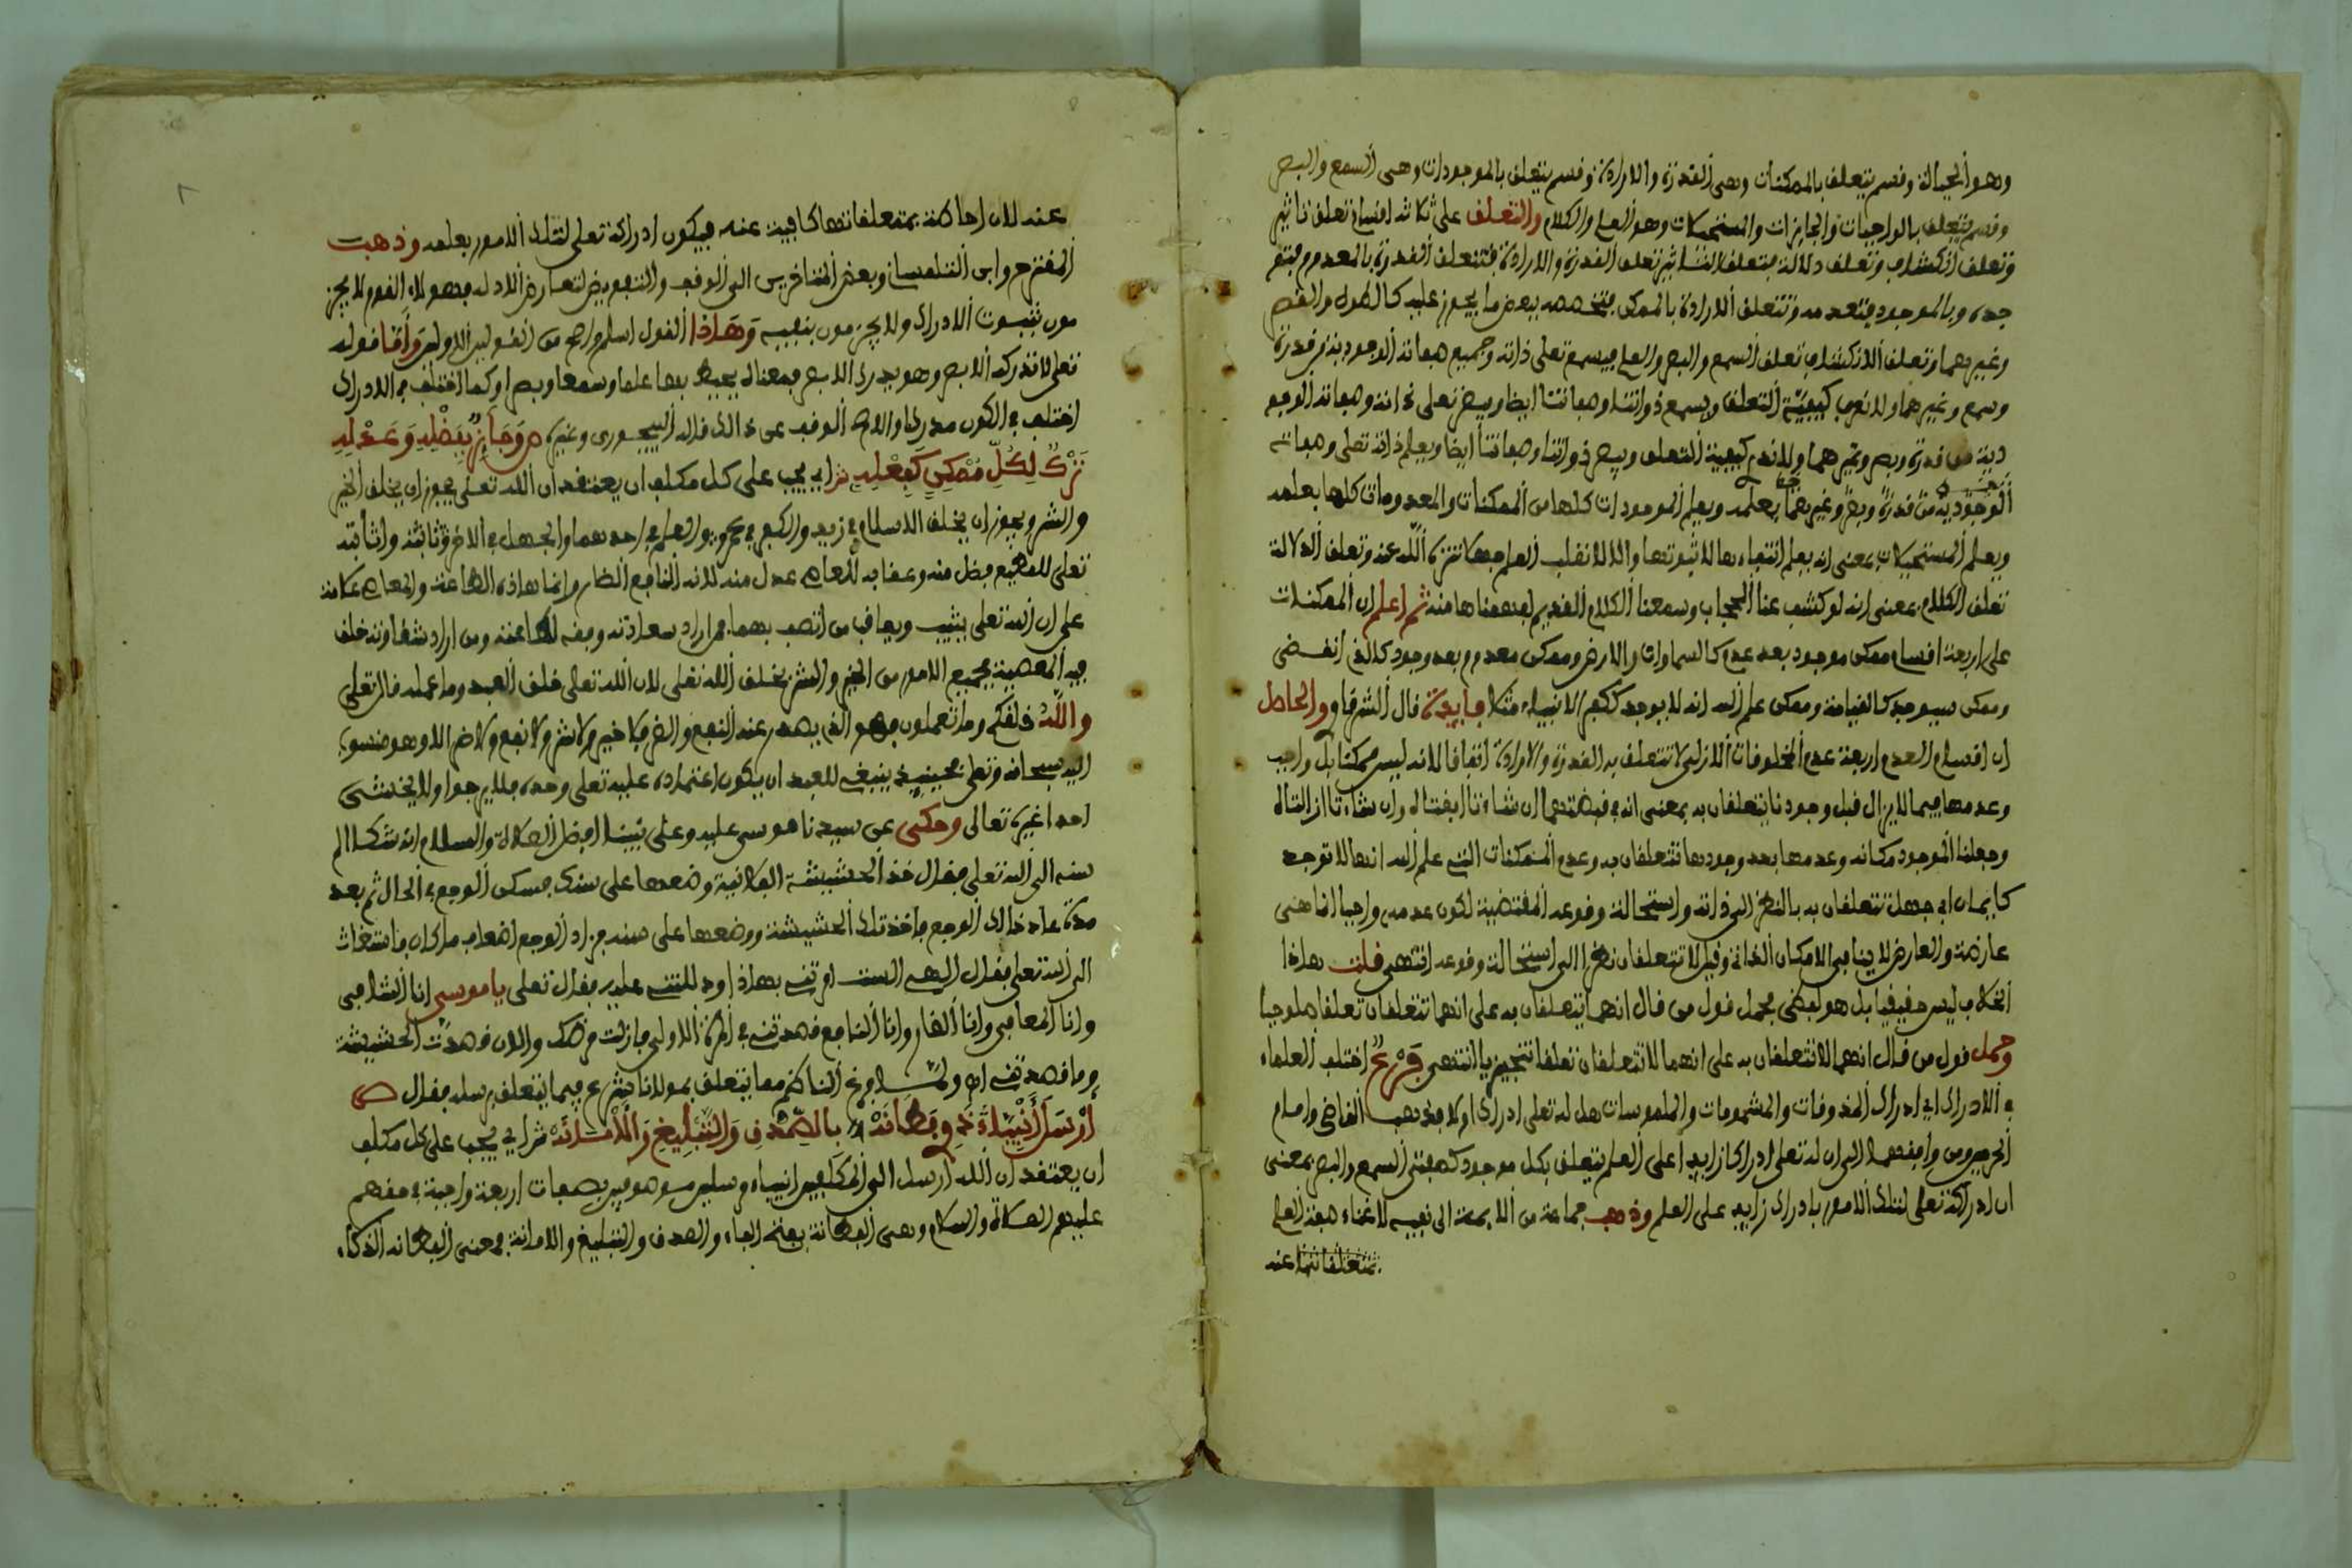 وهو الحياة وقسم يتعلق بالممكنات وهى القدرة والارادة وقسم يتعلق بالموجودات وهى السمع والبصر
وقسم يتعلق بالواجبات والجايزات والمستحيلات وهو العلم والكلام والتعلق على ثلاثة اقسام تعلق تاثير
وتعلق انكشاف وتعلق دلالة فتعلق التاثير تعلق القدرة والارادة فتتعلق القدرة بالمعدوم فتو
جده وبالموجود فتعدمه وتتعلق الارادة بالممكن فتخصصه ببعض ما يجوز عليه كالطول والقصر
وغيرهما وتعلق الانكشاف تعلق السمع والبصر والعلم فيسمع تعلى ذاته وجميع صفاته الوجودية من قدرة
وسمع وغيرهما ولا نعرف كيفية التعلق ويسمع ذواتنا وصفاتنا ايضا ويبصر تعلى ذاته وصفاته الوجو
دية من قدرة وبصر وغيرهما ولا ندر كيفية التعلق ويبصر ذواتنا وصفاتنا ايضا ويعلم ذاته تعلى وصفاته
الوجودية من قدرة وبصر وغيرهما بعلمه ويعلم الموجودات كلها من الممكنات والمعدومات كلها بعلمه
ويعلم المستحيلات بمعنى انه يعلم انتفاءها لا ثبوتها والا لانقلب العلم جهلا تنزه الله عنه وتعلق الدلالة
تعلق الكلام بمعنى انه لو كشف عنا الحجاب وسمعنا الكلام القديم لفهمناها منه ثم اعلم ان الممكنات
على اربعة اقسام ممكن موجود بعد عدم كالسماوات والارض وممكن معدوم بعد وجود كالذى انقضى
وممكن سيوجد كالقيامة وممكن علم الله انه لا يوجد ككفر الانبياء مثلا فايدة قال الشرقاو والحاصل
ان اقسام العدم اربعة عدم المخلوقات الازلى لا تتعلق به القدرة والارادة اتفاقا لانه ليس ممكنا بل واجب
وعدمها فيما لا يزال قبل وجودنا يتعلقان به بمعنى انه فى قبضتهما ان شاءتا ابقتاه وان شاءتا ازالتاه
وجعلتا الموجود مكانه وعدمها بعد وجودها تتعلقان به وعدم الممكنات التى علم الله انها لا توجد
كايمان ابى جهل تتعلقان به بالنظر الى ذاته واستحالة وقوعه المقتضية لكون عدمه واجبا انما هى
عارضة والعارض لا ينافى الامكان الذاتى وقيل لا تتعلقان نظرا الى استحالة وقوعه انتهى قلت هاذا
الخلاف ليس حقيقيا بل هو لفظى يحمل قول من قال انهما يتعلقان به على انهما تتعلقان تعلقا صلوحيا
وحمل قول من قال انهما لا تتعلقان به على انهما لا تتعلقان تعلقا تنجيزيا انتهى فرع اختلف العلماء
فى الادراك اى ادراك المذوقات والمشمومات والملموسات هل له تعلى ادراك اولا فذهب القاضى وامام
الحرمين ومن وافقهما الى ان له تعلى ادراكا زايدا على العلم يتعلق بكل موجود كصفتى السمع والبصر بمعنى
ان ادراكه تعلى لتلك الامور بادراك زايد على العلم وذهب جماعة من الايمة الى نفيه لاغناء صفة العلم
بمتعلقاتها عنه
عنه لان احاطته بمتعلقاتها كافية عنه فيكون ادراكه تعلى لتلك الامور بعلمه وذهبت
المقترح وابن التلمسانى وبعض المتاخرين الى الوقف والتفويض لتعارض الادلة فهولاء القوم لا يجز
مون بثبوت الادراك ولا يجزمون بنفيه وهاذا القول اسلم واصح من القولين الاولين واما قوله
تعلى لا تدركه الابصر وهو يدرك الابصر فمعناه يحيط بها علما وسمعا وبصرا وكما اختلف فى الادراك
اختلف فى الكون مدركا والاصح الوقف عن ذالك قاله البيجورى وغيره ص وجائز بفضله وعدله
ترك لكل ممكن كفعله ش اى يجب على كل مكلف ان يعتقد ان الله تعلى يجوز ان يخلق الخير
والشر ويجوز ان يخلق الاسلام فى زيد والكفر فى عمرو والعلم فى احدهما والجهل فى الاخر وثابتة واثابته
تعلى للمطيع فضل منه وعقابه للعاصى عدل منه لانه النافع الضار وانما هاذه الطاعة والمعاصى علامة
على ان الله تعلى يثيب ويعاقب من اتصف بهما فمن اراد سعادته وفقه لطاعته ومن اراد شقاوته خلق
فيه المعصية فجميع الامور من الخير والشر بخلق الله تعلى لان الله تعالى خلق العبد وما عمله قال تعلى
والله خلقكم وما تعملون فهو الذى يصدر عنه النفع والضر فلا خير ولا شر ولا نفع ولا ضر الا وهو منسوب
اليه سبحانه وتعلى فحينيذ ينبغى للعبد ان يكون اعتماده عليه تعلى وحده فلا يرجوا ولا يخشى
احدا غيره تعالى وحكى عن سيدنا موسى عليه وعلى نبينا افضل الصلاة والسلام انه شكا الم
سنه الى الله تعلى فقال خذ الحشيشة الفلانية وضعها على سنك فسكن الوجع فى الحال ثم بعد
مدة عاد ذالك الوجع فاخذ تلك الحشيشة ووضعها على سنه فزاد الوجع اضعاف ما كان فاستغاث
الى الله تعلى فقال الهى الست امرتنى بهاذا ودللتنى عليه فقال تعلى يا موسى انا الشافى
وانا المعافى وانا الضار وانا النافع قصدتنى فى المرة الاولى فازلت مرضك والان قصدت الحشيشة
وما قصدتنى اهـ ولما فرغ الناظم مما يتعلق بمولانا شرع فيما يتعلق برسله فقال ص
ارسل انبياء ذوى فطانه بالصدق والتبليغ والامانه ش اى يجب على كل مكلف
ان يعتقد ان الله ارسل الى المكلفين انبياء مرسلين موصوفين بصفات اربعة واجبة فى حقهم
عليهم الصلاة والسلام وهى الفطانة بفتح الفاء والصدق والتبليغ والامانة فمعنى الفطانه الذكاء